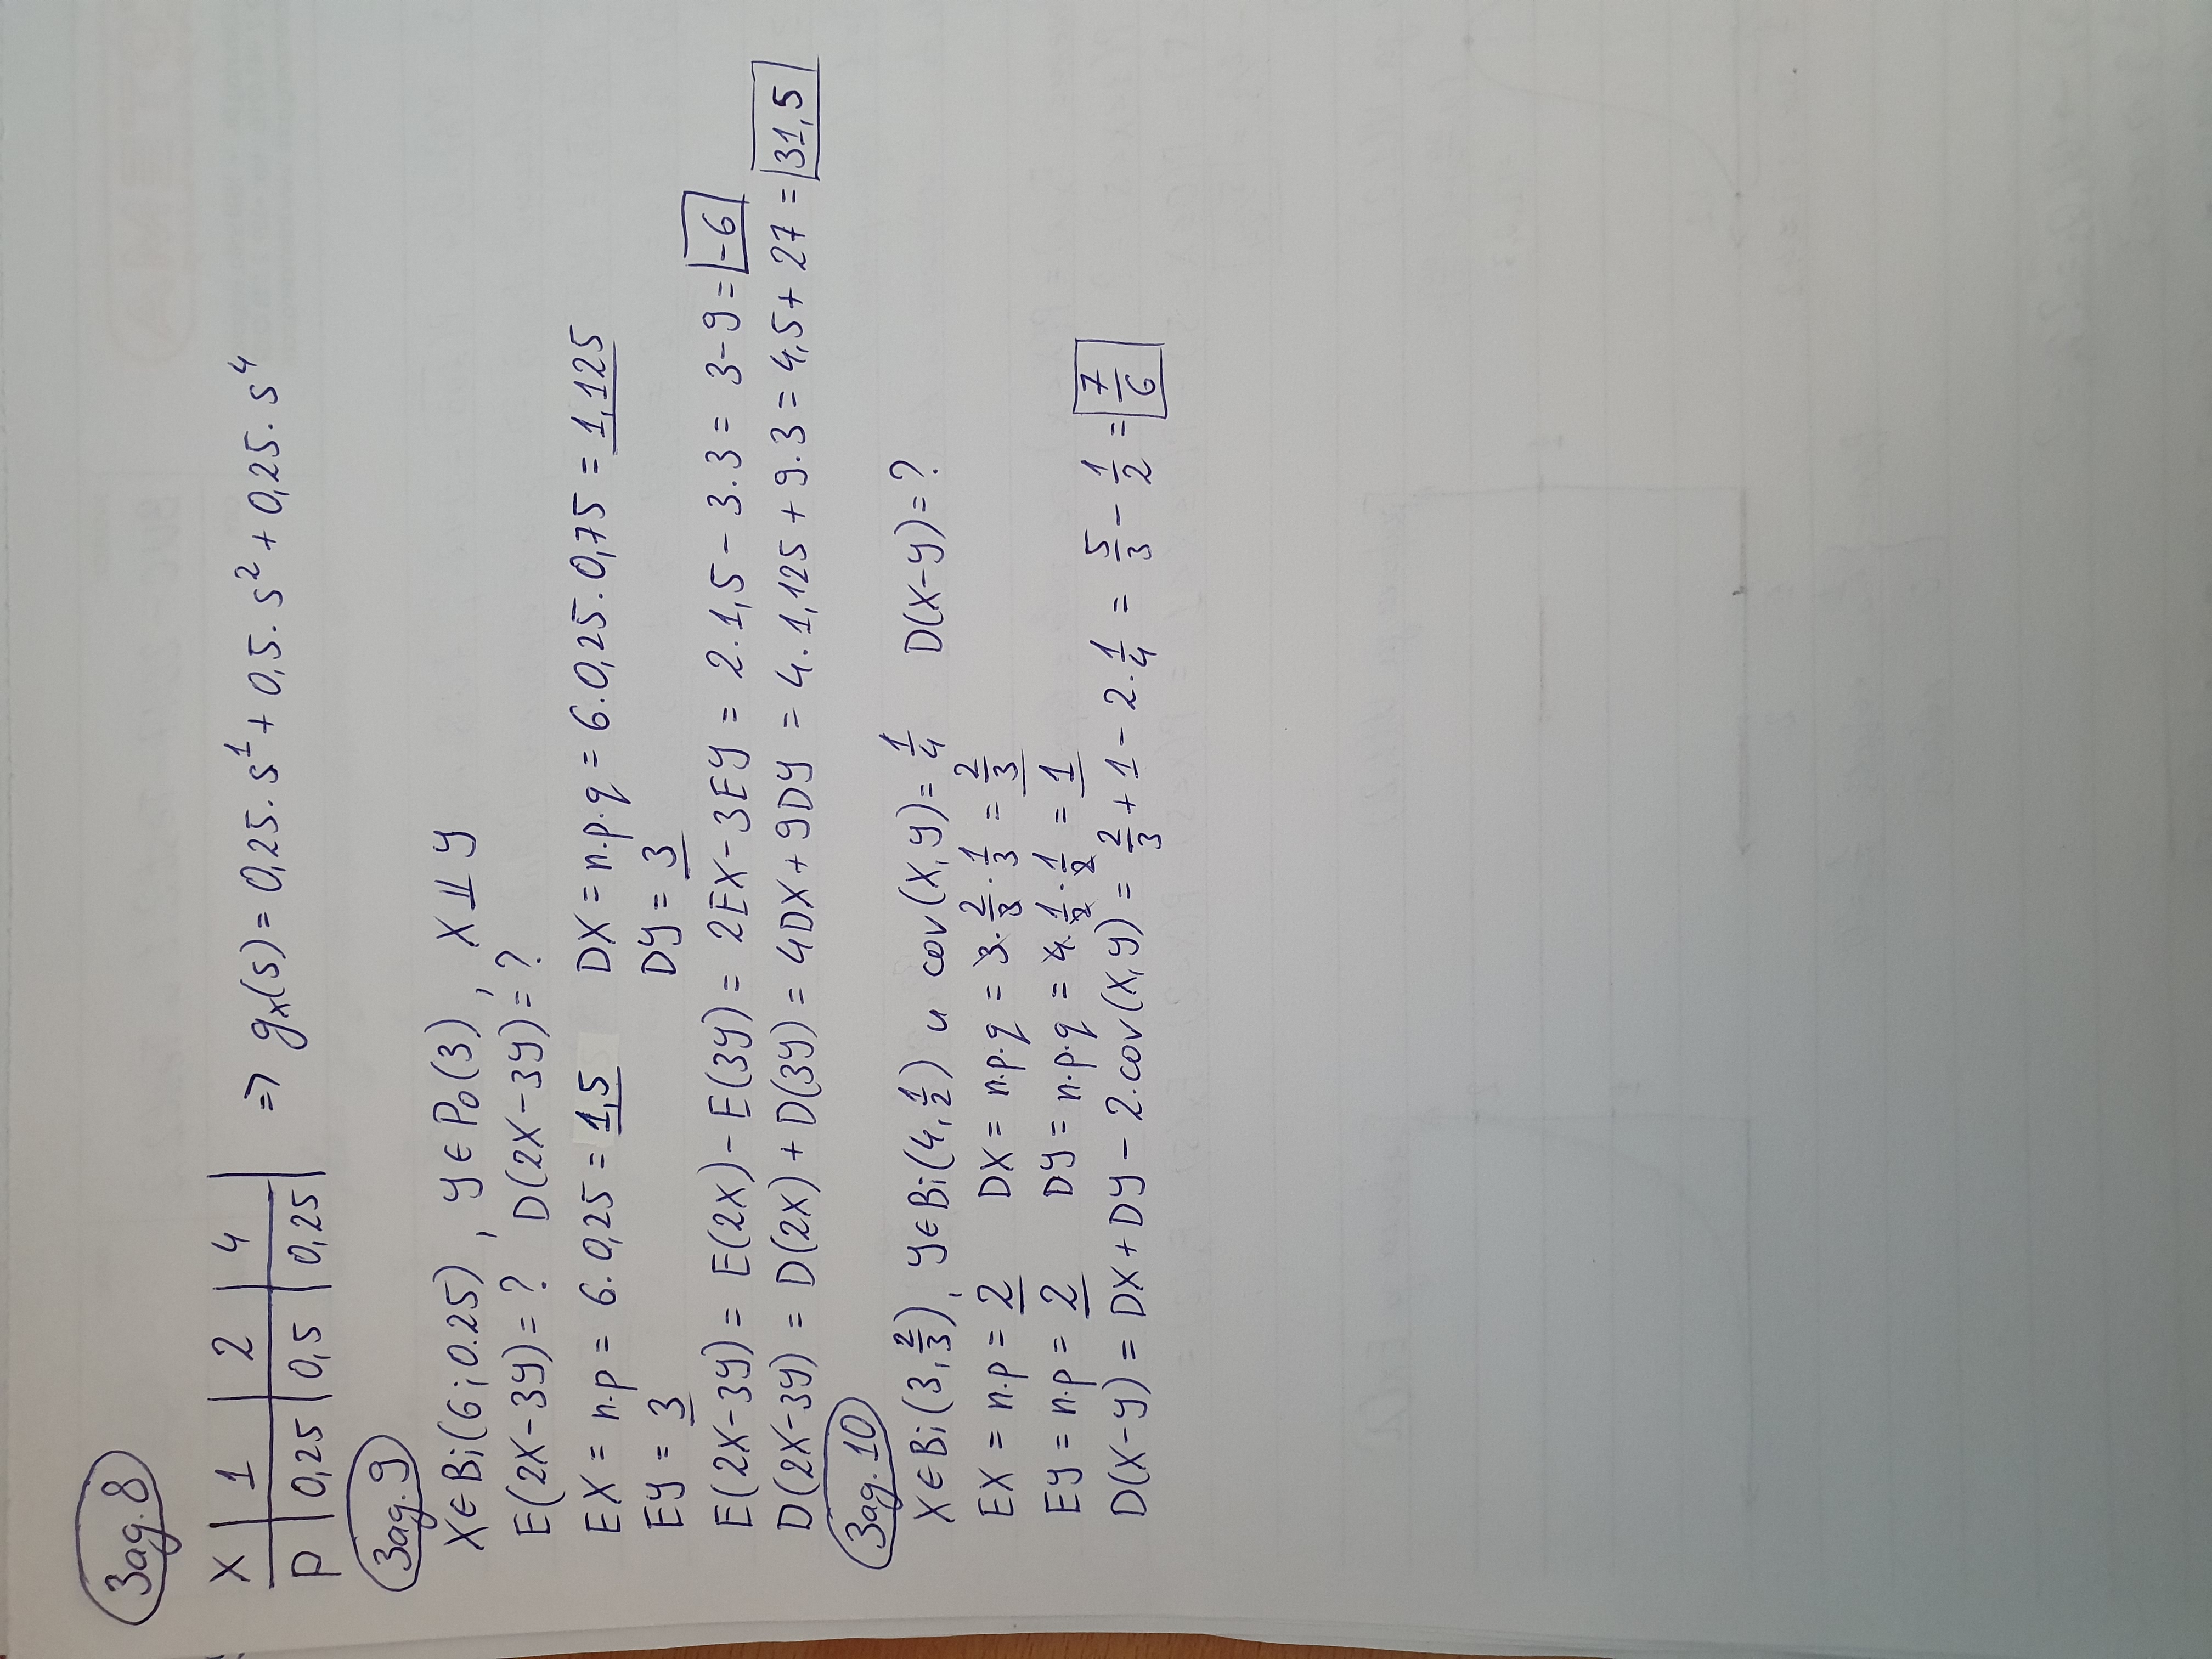 Зад. 8
X | 1 | 2 | 4 |
P | 0,25 | 0,5 | 0,25 |
=> gₓ(s) = 0,25. s¹ + 0,5. s² + 0,25. s⁴
Зад. 9
X ∈ Bi(6; 0.25), Y ∈ Po(3), X ⫫ Y
E(2X-3Y) = ? D(2X-3Y) = ?
EX = n.p = 6. 0,25 = 1,5 DX = n.p.q = 6.0,25.0,75 = 1,125
EY = 3 DY = 3
E(2X-3Y) = E(2X) - E(3Y) = 2EX - 3EY = 2.1,5 - 3.3 = 3-9 = -6
D(2X-3Y) = D(2X) + D(3Y) = 4DX + 9DY = 4. 1,125 + 9.3 = 4,5 + 27 = 31,5
Зад. 10
X ∈ Bi(3, 2/3), Y ∈ Bi(4, 1/2) и cov(X, Y) = 1/4 D(X-Y) = ?
EX = n.p = 2 DX = n.p.q = 3. 2/3 . 1/3 = 2/3
EY = n.p = 2 DY = n.p.q = 4. 1/2 . 1/2 = 1
D(X-Y) = DX + DY - 2.cov(X, Y) = 2/3 + 1 - 2. 1/4 = 5/3 - 1/2 = 7/6